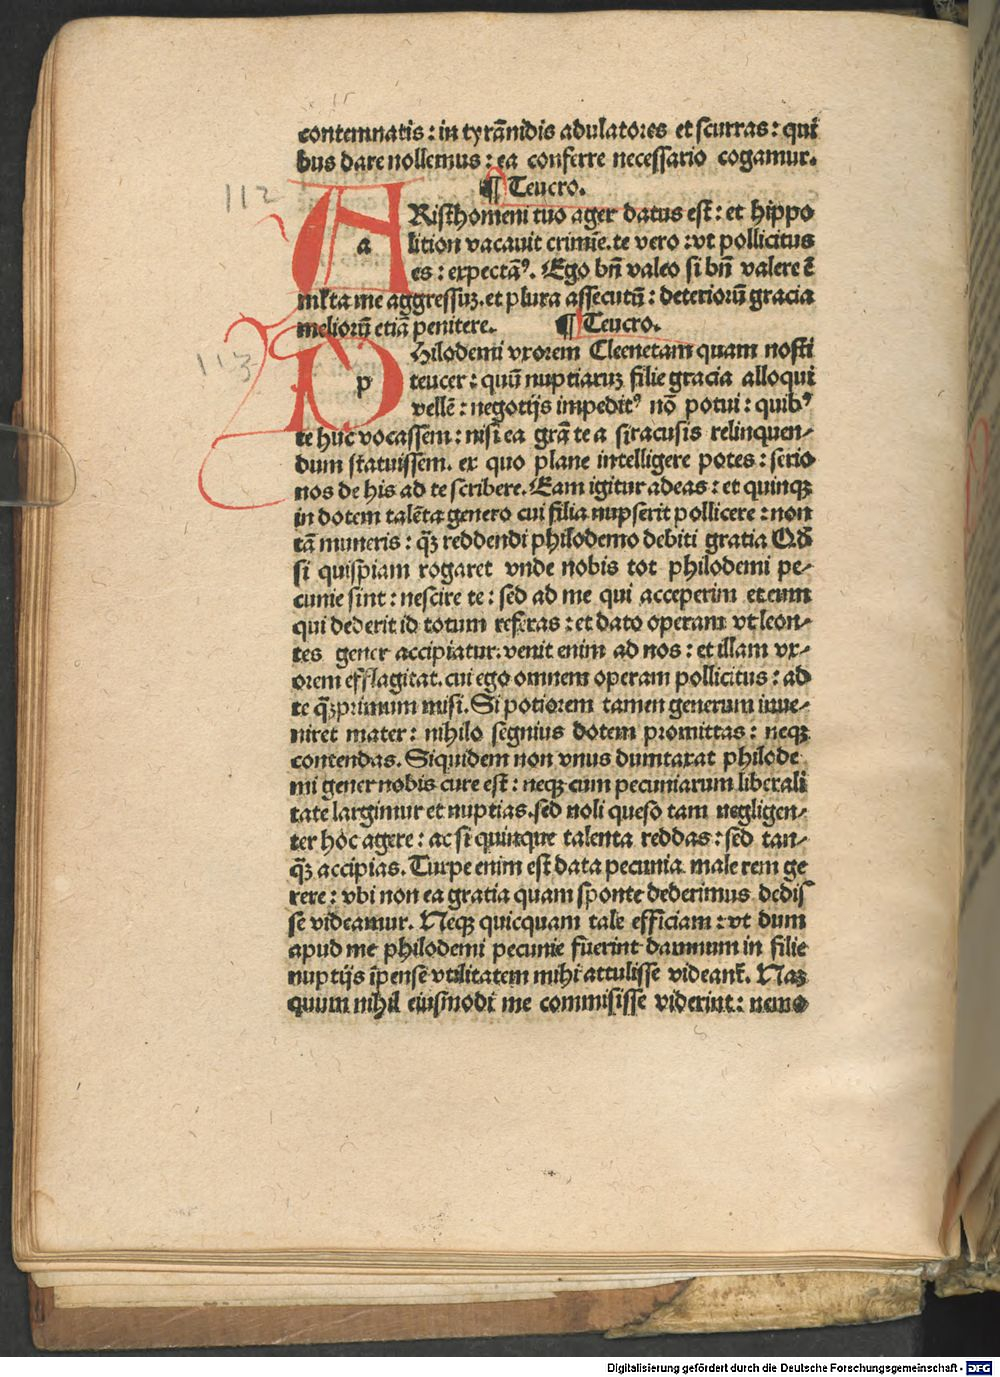 contemnatis : in tyrānidis adulatores et scurras : qui
bus dare nollemus : ea conferre necessario cogamur.
¶ Teucro.
112
ARisthomeni tuo ager datus est : et hippo
a lition vacauit crimīe. te vero : vt pollicitus
es : expectāꝰ. Ego bn̄ valeo si bn̄ valere ē
ml̓ta me aggressuꝫ. et plura assecutū : deteriorū gracia
meliorū etiā penitere. ¶ Teucro.
113
Philodemi vxorem Cleenetam quam nosti
p teucer : quū nuptiaruꝫ filie gracia alloqui
vellē : negotijs impeditꝰ nō potui : quibꝰ
te huc vocassem : nisi ea grā te a siracusis relinquen⸗
dum statuissem. ex quo plane intelligere potes : serio
nos de his ad te scribere. Eam igitur adeas : et quinqꝫ
in dotem talēta genero cui filia nupserit pollicere : non
tā muneris : qꝫ̄ reddendi philodemo debiti gratia Qð
si quispiam rogaret vnde nobis tot philodemi pe⸗
cunie sint : nescire te : sed ad me qui acceperim et eum
qui dederit id totum referas : et dato operam vt leon⸗
tes gener accipiatur. venit enim ad nos : et illam vx⸗
orem efflagitat. cui ego omnem operam pollicitus : ad
te qꝫ̄primum misi. Si potiorem tamen generum inue⸗
niret mater : nihilo segnius dotem promittas : neqꝫ
contendas. Siquidem non vnus dumtaxat philode
mi gener nobis cure est : neqꝫ cum pecuniarum liberali
tate largimur et nuptias. sed noli queso tam negligen⸗
ter hoc agere : ac si quinque talenta reddas : sed tan⸗
qꝫ̄ accipias. Turpe enim est data pecunia male rem ge
rere : vbi non ea gratia quam sponte dederimus dedis
se videamur. Neqꝫ quicquam tale efficiam : vt dum
apud me philodemi pecunie fuerint damnum in filie
nuptijs īpense vtilitatem mihi attulisse videant̄. Naꝫ
quum nihil eiusmodi me commisisse viderint : nemo
Digitalisierung gefördert durch die Deutsche Forschungsgemeinschaft - DFG